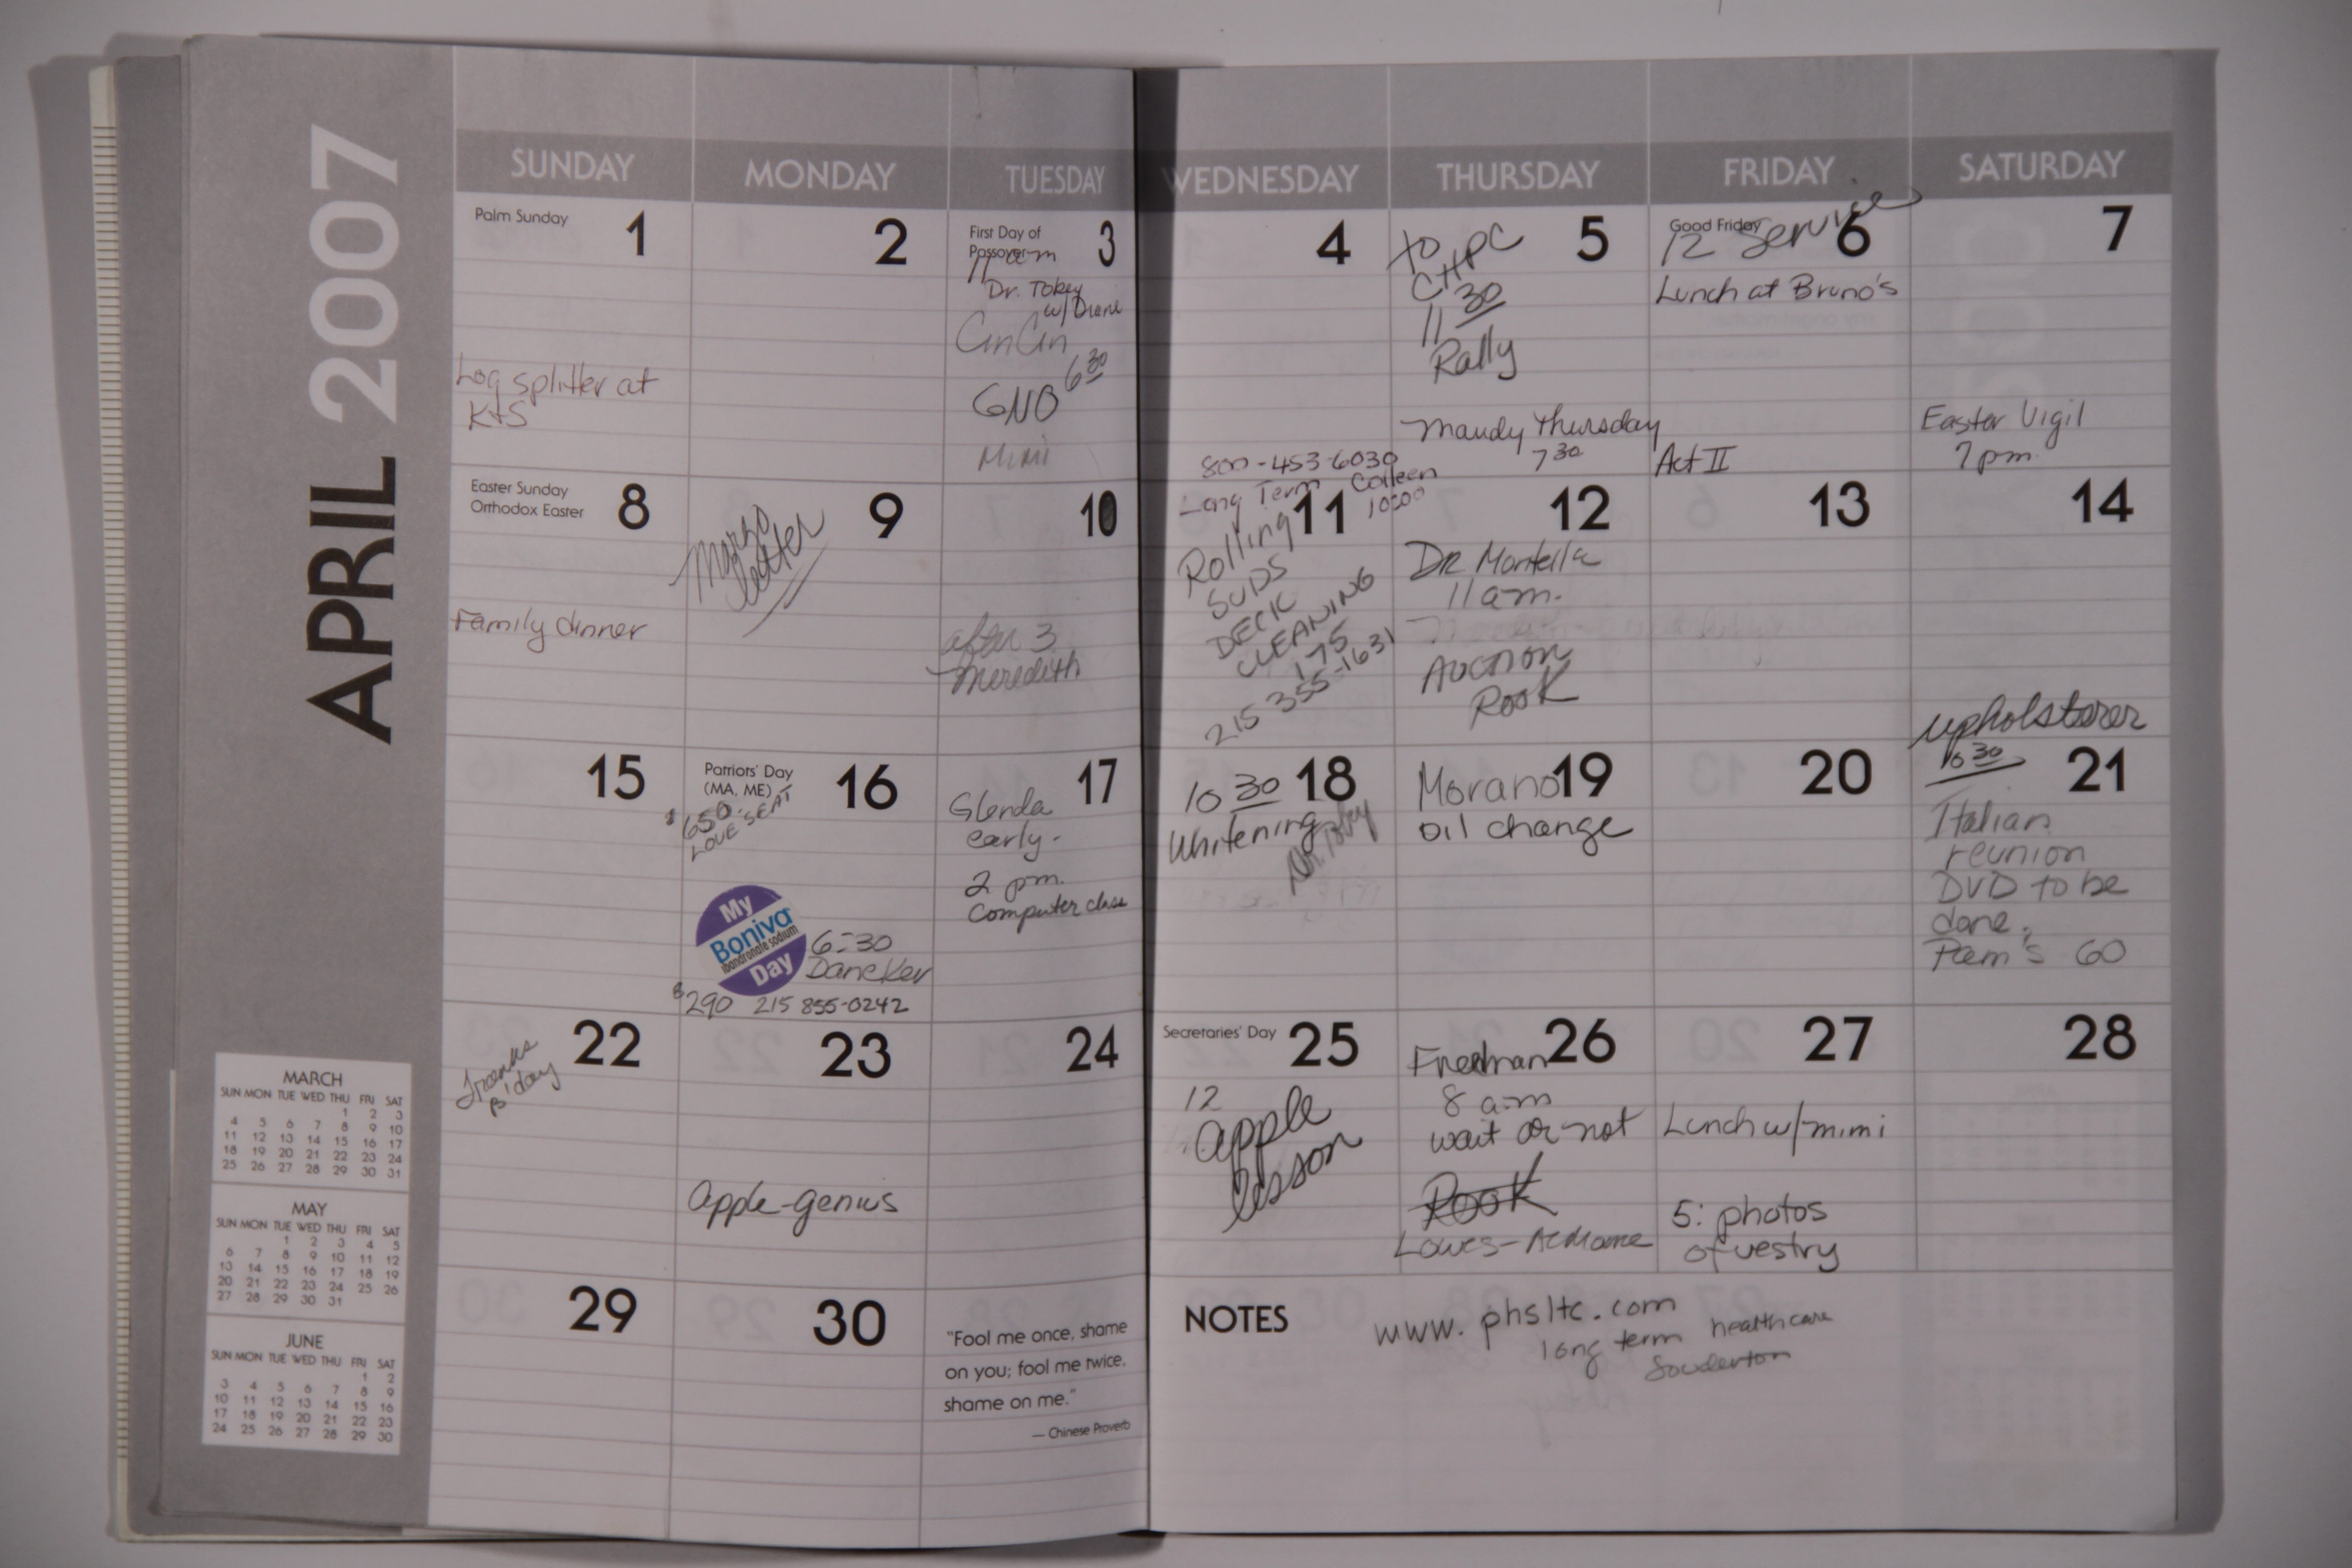 APRIL 2007
SUNDAY MONDAY TUESDAY WEDNESDAY THURSDAY FRIDAY SATURDAY
Palm Sunday 1
Log splitter at
K+S
2
First Day of
Passover 3
11 am
Dr. Tobey
w/Diane
CinCin
GNO 6 30
Mimi
4
800-453-6030
Long Term Colleen
10:00
5
to
CHPC
11 30
Rally
Maudy Thursday
7 30
Good Friday 6
12 Service
Lunch at Bruno's
Act II
7
Easter Vigil
7 pm.
Easter Sunday
Orthodox Easter 8
Family dinner
9
Margo
10
after 3
Meredith
11
Rolling
SUDS
DECK
CLEANING
175
215 355-1631
12
DR Montella
11 am.
Auction
Rook
13
14
upholsterer
10 30
15
Patriors' Day
(MA, ME) 16
$650.
LOVE SEAT
My
Boniva
ibandronate sodium
Day
6:30
Daneker
$290 215 855-0242
17
Glenda
early.
2 pm.
Computer class
18
10 30
Whitening
Dr. Tobey
19
Morano
oil change
20
21
Italian
reunion
DVD to be
done.
Pam's 60
22
Franks
B'day
23
Apple-genius
24
Secretaries' Day 25
12
apple
lesson
26
Friedman
8 am
wait or not
Rook
Lowes-
27
Lunch w/mimi
5: photos
of vestry
28
29
30
"Fool me once, shame
on you; fool me twice,
shame on me."
— Chinese Proverb
NOTES
www.phsltc.com
long term healthcare
Souderton
MARCH
SUN MON TUE WED THU FRI SAT
1 2 3
4 5 6 7 8 9 10
11 12 13 14 15 16 17
18 19 20 21 22 23 24
25 26 27 28 29 30 31
MAY
SUN MON TUE WED THU FRI SAT
1 2 3 4 5
6 7 8 9 10 11 12
13 14 15 16 17 18 19
20 21 22 23 24 25 26
27 28 29 30 31
JUNE
SUN MON TUE WED THU FRI SAT
1 2
3 4 5 6 7 8 9
10 11 12 13 14 15 16
17 18 19 20 21 22 23
24 25 26 27 28 29 30